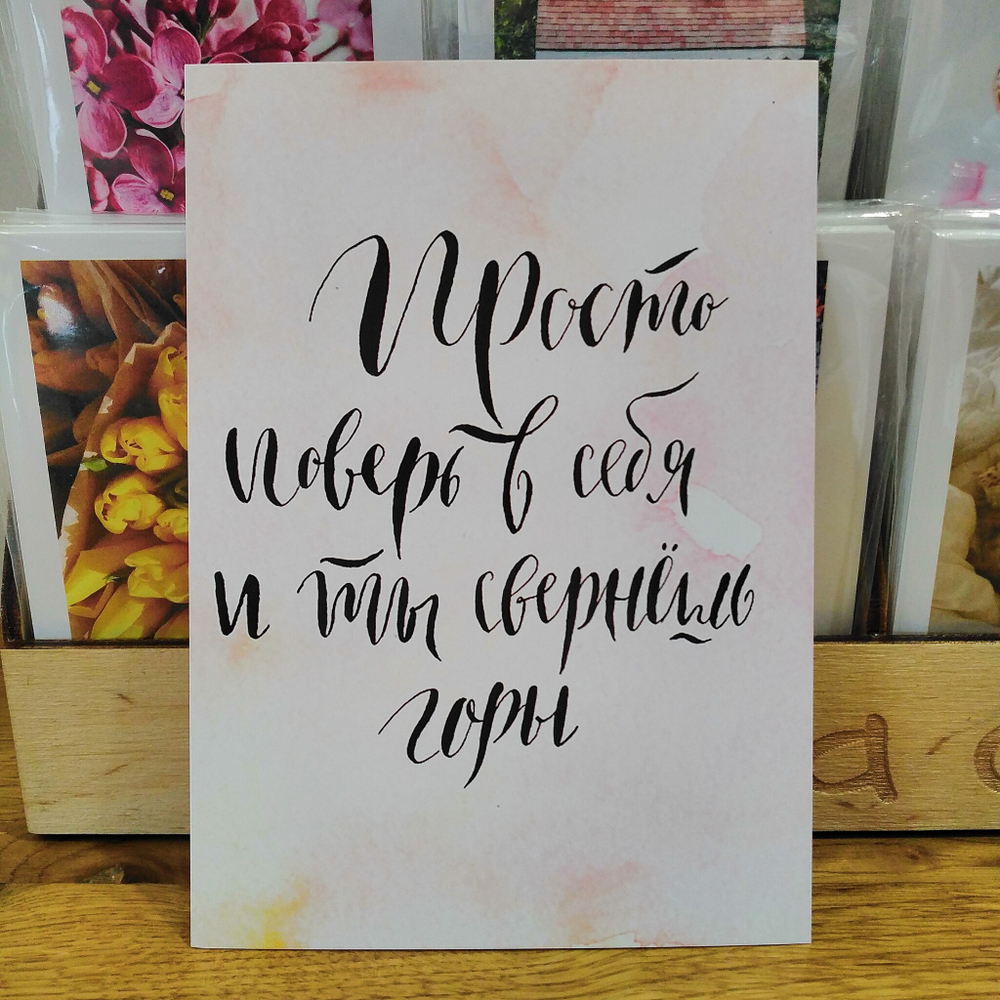 Просто
поверь в себя
и ты свернёшь
горы
а